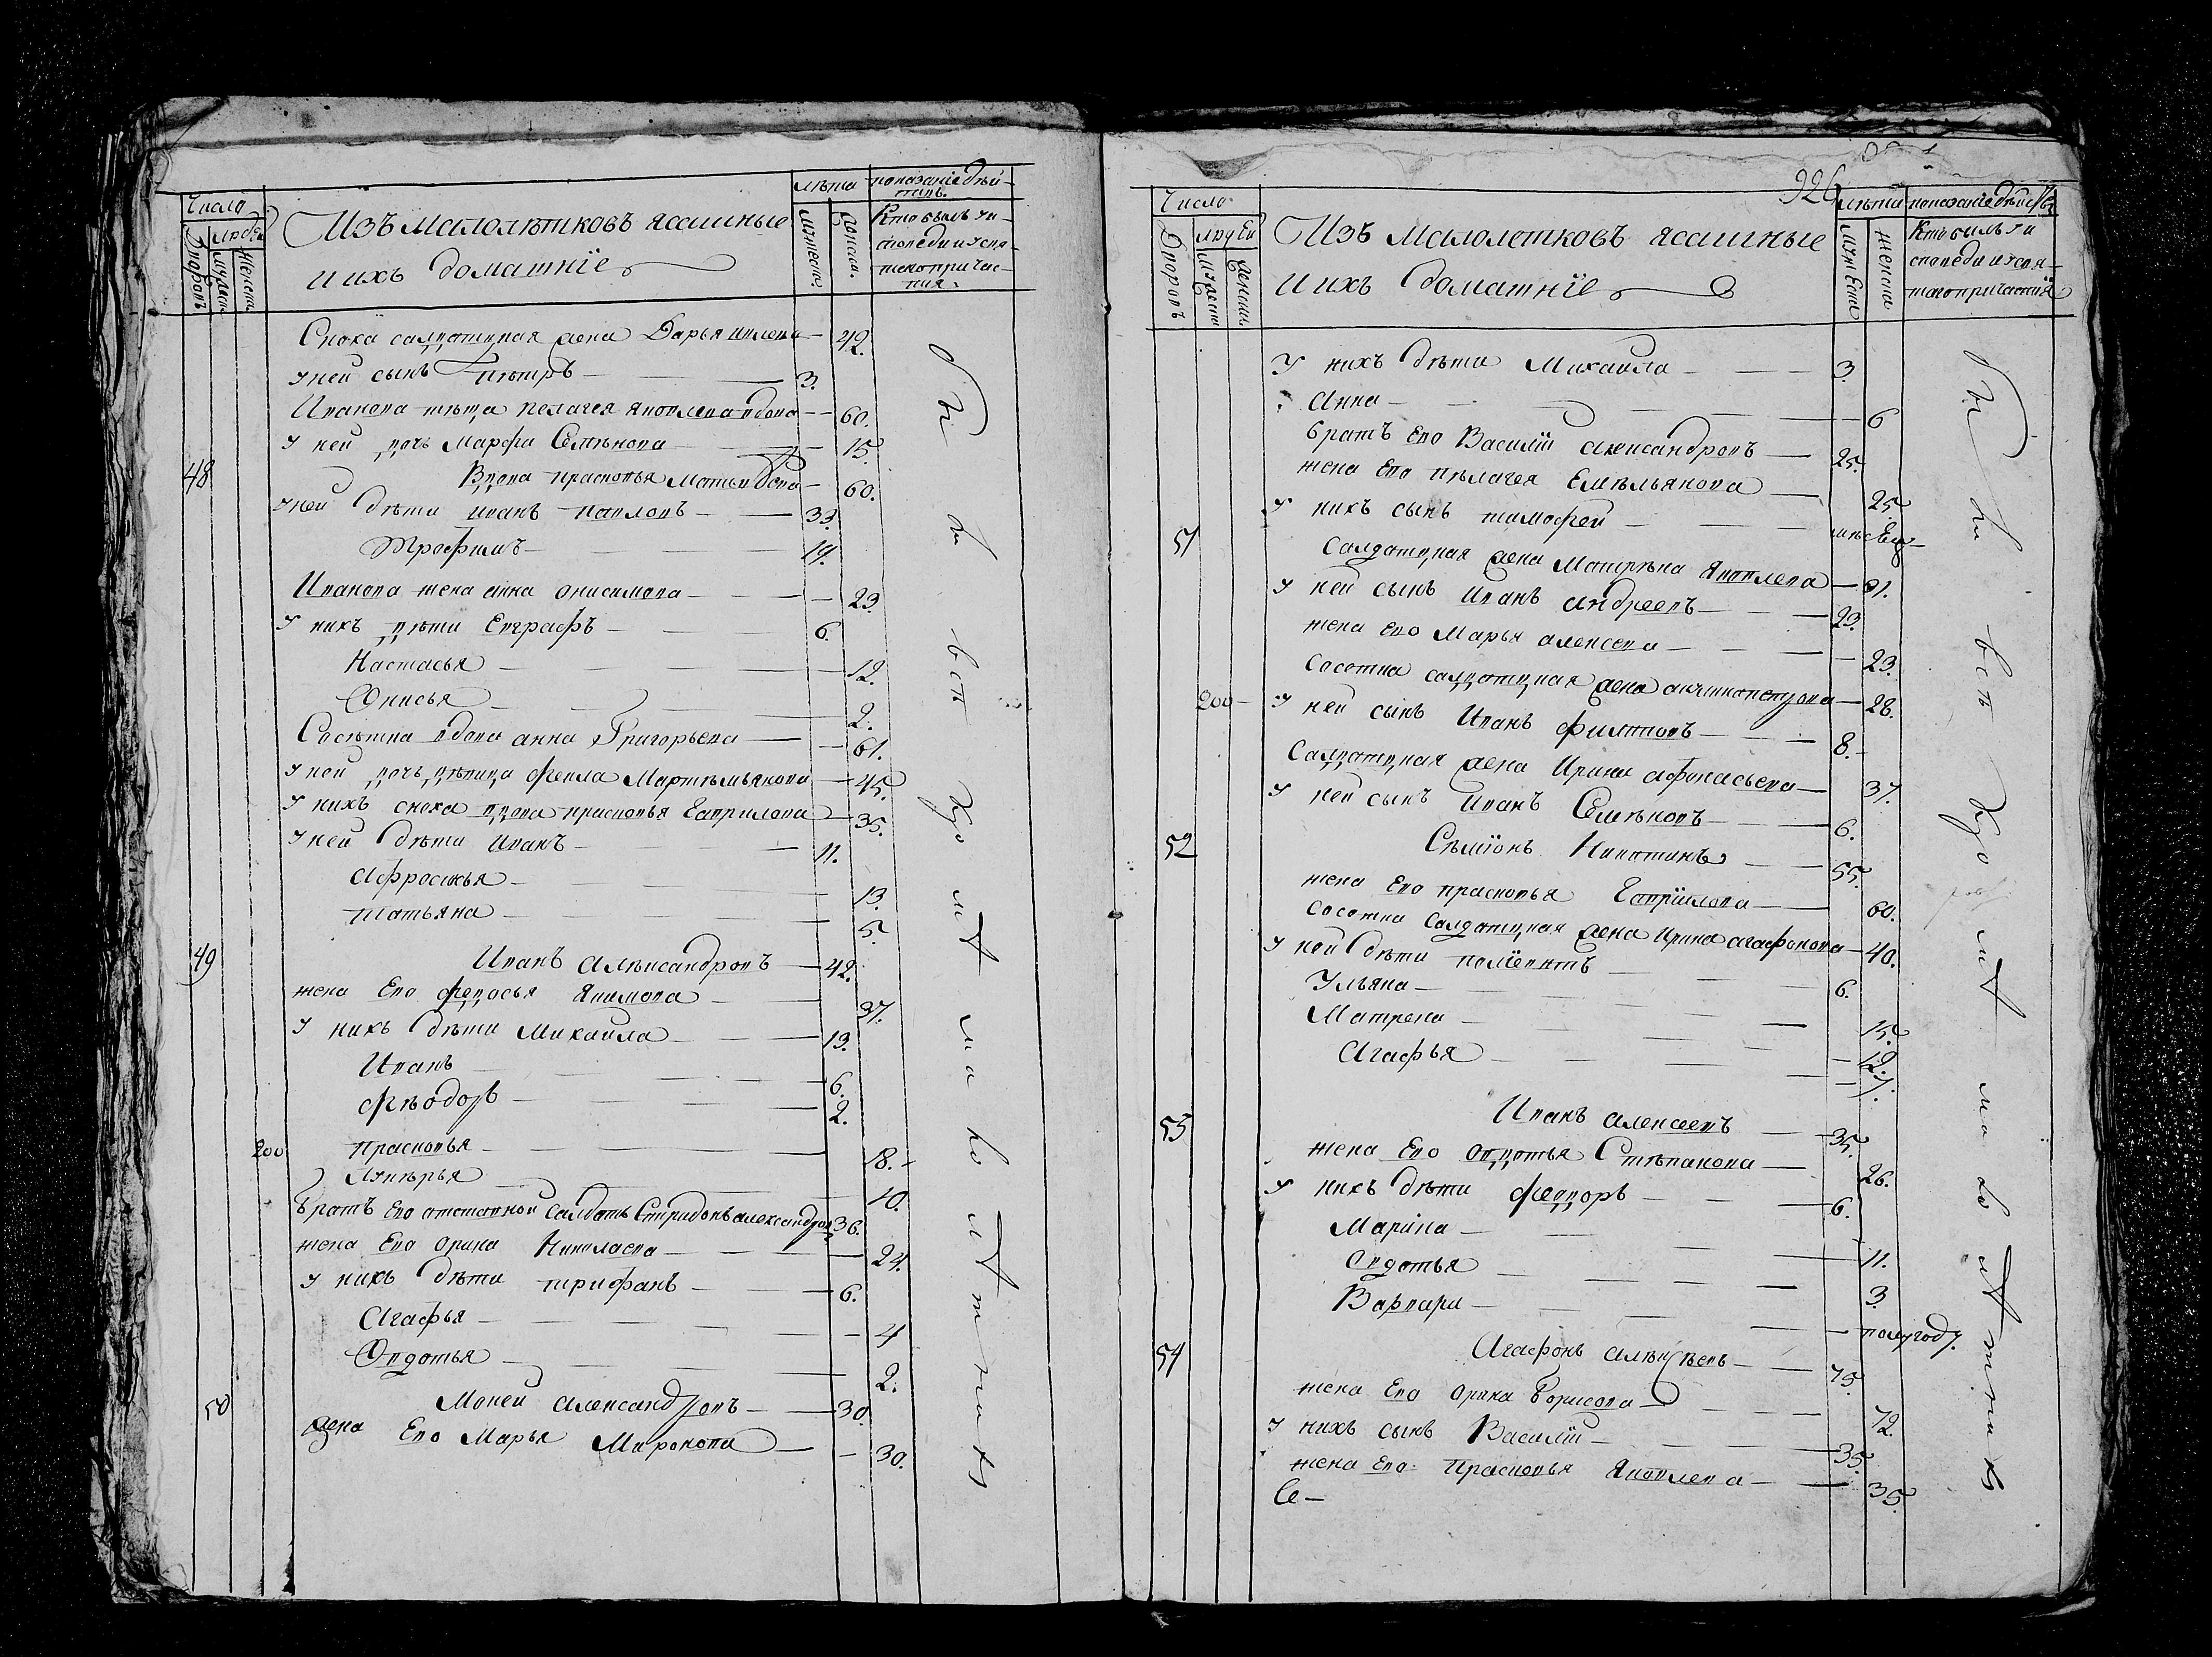 Число
Дворовъ
людей
мужеска
женска
Изъ малолѣтковъ ясашные
и ихъ домашнiе
лѣта
мужеска
женска
показанiе дѣй-
ствъ.
Кто былъ у и-
сповѣди и у свя-
таго причас-
тия.
Сноха салдатцкая жена Дарья 42.
у ней сынъ Пѣтръ 3.
Иванова тѣща Пелагея Яковлева вдова 60.
У ней дочь Марфа Семѣнова 15.
48 Вдова Прасковья Матвѣ 60.
у ней дѣти Иванъ Павловъ 33.
Трофимъ 19.
Иванова жена Анна Онисимова 29.
У нихъ дѣти Евграфъ 6.
Настасья 12.
Онисья 2.
Сосѣтка вдова Анна Григорьева 61.
у ней дочь дѣвица Фекла Мартѣмьянова 45.
У нихъ сноха вдова Прасковья Гаврилова 35.
у ней дѣти Иванъ 11.
Афросинья 13.
Татьяна 5.
49 Иванъ Алѣксандровъ 42.
жена Ево Федосья Якимова 37.
У нихъ дѣти Михаила 13.
Иванъ 6.
Фѣодоръ 2.
200 Прасковья 18.
Лукѣрья 10.
Братъ Ево отставной салдатъ Спиридонъ Александровъ 36.
жена Ево Орина Николаева 24.
У нихъ дѣти Трифанъ 6.
Агафья 4
Овдотья 2.
50 Мокей Александровъ 30.
жена Ево Марья Миронова 30.
Оные все кромѣ малолѣтнихъ
926
Число
Дворовъ
людей
мужеска
женски
Изъ малолетковъ ясашные
и ихъ домашнiе
лѣта
мужеска
женска
показанiе дѣйствъ
Кто былъ у и
споведи и у свя-
таго причастия
У нихъ дѣти Михаила 3.
Анна 6
братъ Ево Василïй Александровъ 25.
жена Ево Пѣлагея Емѣльянова 25.
У нихъ сынъ Тимофей
51 Салдатцкая жена Матрѣна Яковлева 91.
У ней сынъ Иванъ Андреевъ 29.
жена Ево Марья Алексева 23.
Сосетка салдатцкая жена 28.
200 У ней сынъ Иванъ Филиповъ 8.
Салдатцкая жена Ирина Афонасьева 37.
У ней сынъ Иванъ Семѣновъ 6.
52 Сѣмïонъ Никитинъ 55.
жена Ево Прасковья Гаврïилова 60.
Сосетка Салдатцкая жена Ирина Агафонова 40.
У ней дѣти 6.
Ульяна 15.
Матрена 12.
Агафья 7.
53 Иванъ Алексеевъ 35.
жена Ево Овдотья Стѣпанова 26.
У нихъ дѣти Феддоръ 6.
Марiна 11.
Овдотья 3.
Варвара полугоду.
54 Агафонъ Алѣксѣевъ 75.
жена Ево Орина Борисова 72.
У нихъ сынъ Василïй 35.
жена Ево Прасковья Яковлева 35.
Се-
Оные все кромѣ малолѣтнихъ